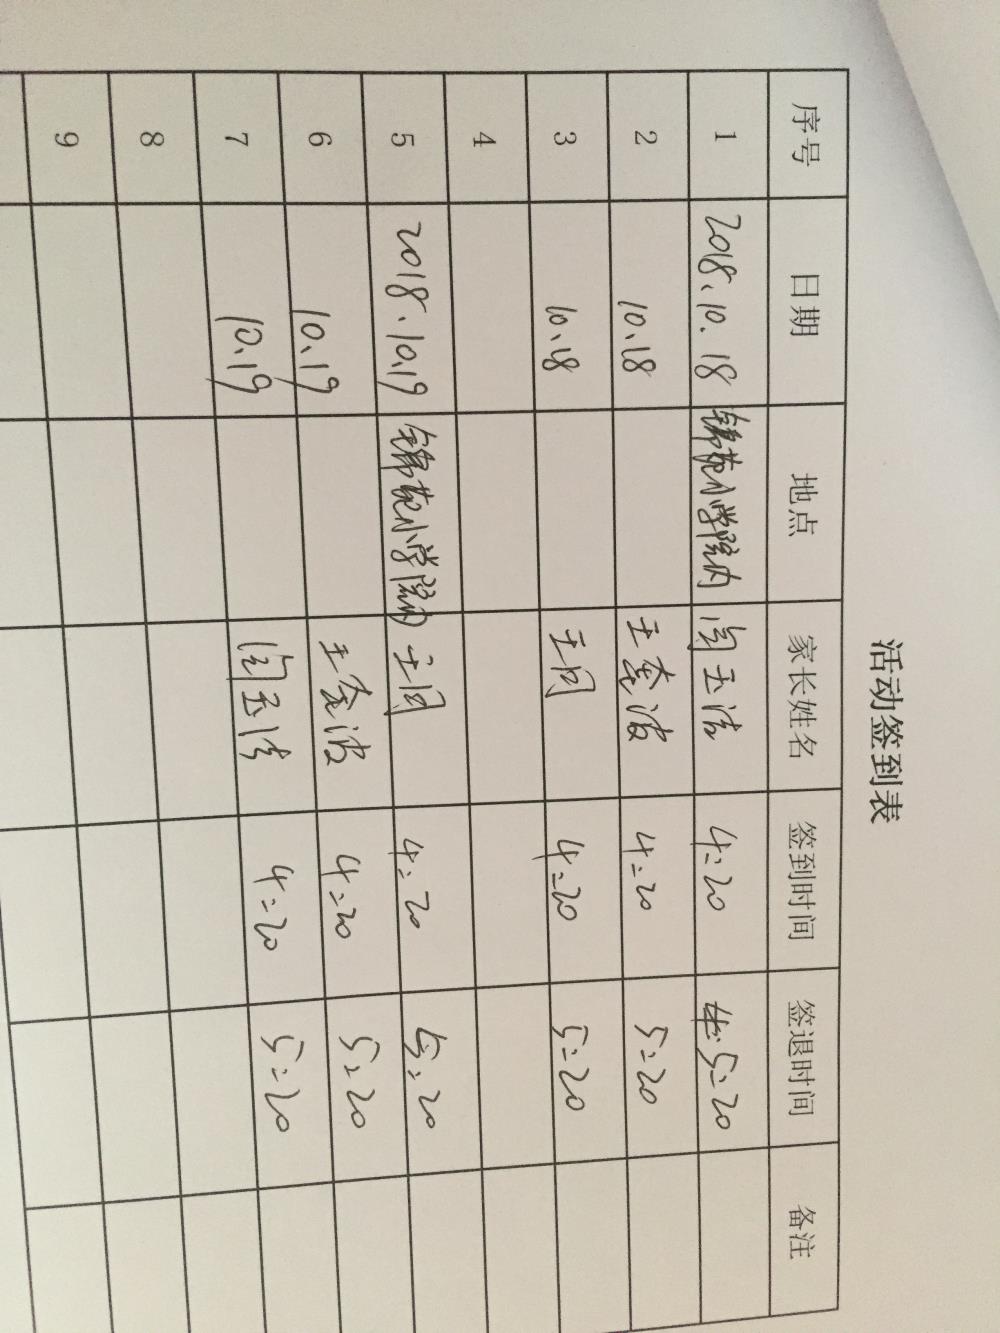 活动签到表
序号 日期 地点 家长姓名 签到时间 签退时间 备注
1 2018、10、18 锦苑小学院内 闫玉洁 4:20 5:20
2 10、18 王奎波 4:20 5:20
3 10、18 王闵 4:20 5:20
4
5 2018、10、19 锦苑小学院内 王闵 4:20 5:20
6 10、19 王奎波 4:20 5:20
7 10、19 闫玉洁 4:20 5:20
8
9